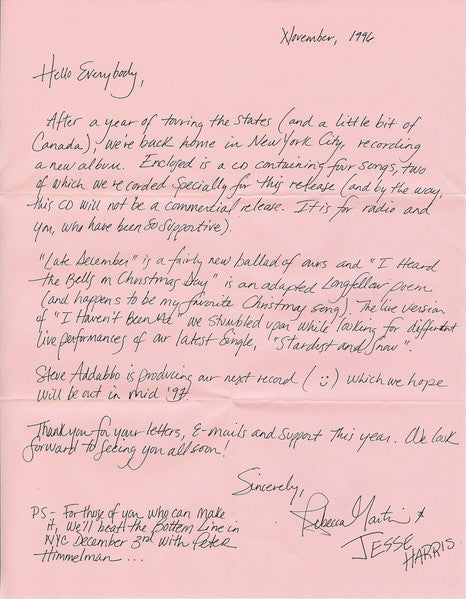 November, 1996
Hello Everybody,
After a year of touring the states (and a little bit of
Canada), we're back home in New York City, recording
a new album. Enclosed is a CD containing four songs, two
of which we recorded specially for this release (and by the way,
this CD will not be a commercial release. It is for radio and
you, who have been so supportive).
"Late December" is a fairly new ballad of ours and "I Heard
the Bells on Christmas Day" is an adapted Longfellow poem
(and happens to be my favorite Christmas song). The live version
of "I Haven't Been Me" we stumbled upon while looking for different
live performances of our latest single, "Stardust and Snow".
Steve Addabbo is producing our next record (:) which we hope
will be out in mid '97.
Thank you for your letters, E-mails and support this year. We look
forward to seeing you all soon!
Sincerely,
Rebecca Martin +
JESSE HARRIS
PS - For those of you who can make
it, we'll be at the Bottom Line in
NYC December 3rd with Peter
Himmelman ...